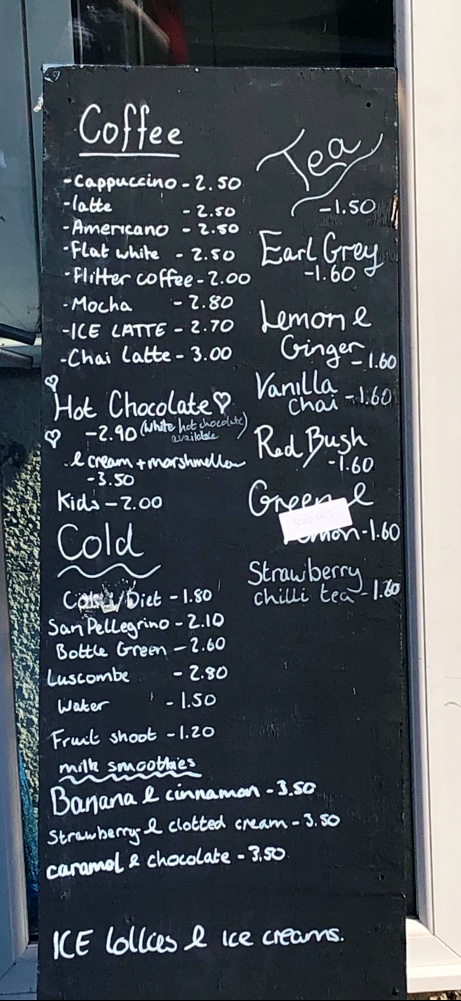 Coffee
-Cappuccino - 2.50
-latte - 2.50
-Americano - 2.50
-Flat white - 2.50
-Flitter coffee - 2.00
-Mocha - 2.80
-ICE LATTE - 2.70
-Chai latte - 3.00
Hot Chocolate♡
-2.90 (white hot chocolate
available)
& cream + marshmellow
-3.50
Kids - 2.00
Cold
Diet - 1.80
San Pellegrino - 2.10
Bottle Green - 2.60
Luscombe - 2.80
Water - 1.50
Fruit shoot - 1.20
milk smoothies
Banana & cinnamon - 3.50
Strawberry & clotted cream - 3.50
caramel & chocolate - 3.50
ICE lollies & ice creams.
Tea
-1.50
Earl Grey
-1.60
Lemon &
Ginger - 1.60
Vanilla
Chai - 1.60
Red Bush
-1.60
Green &
-1.60
Strawberry
chilli tea - 1.60